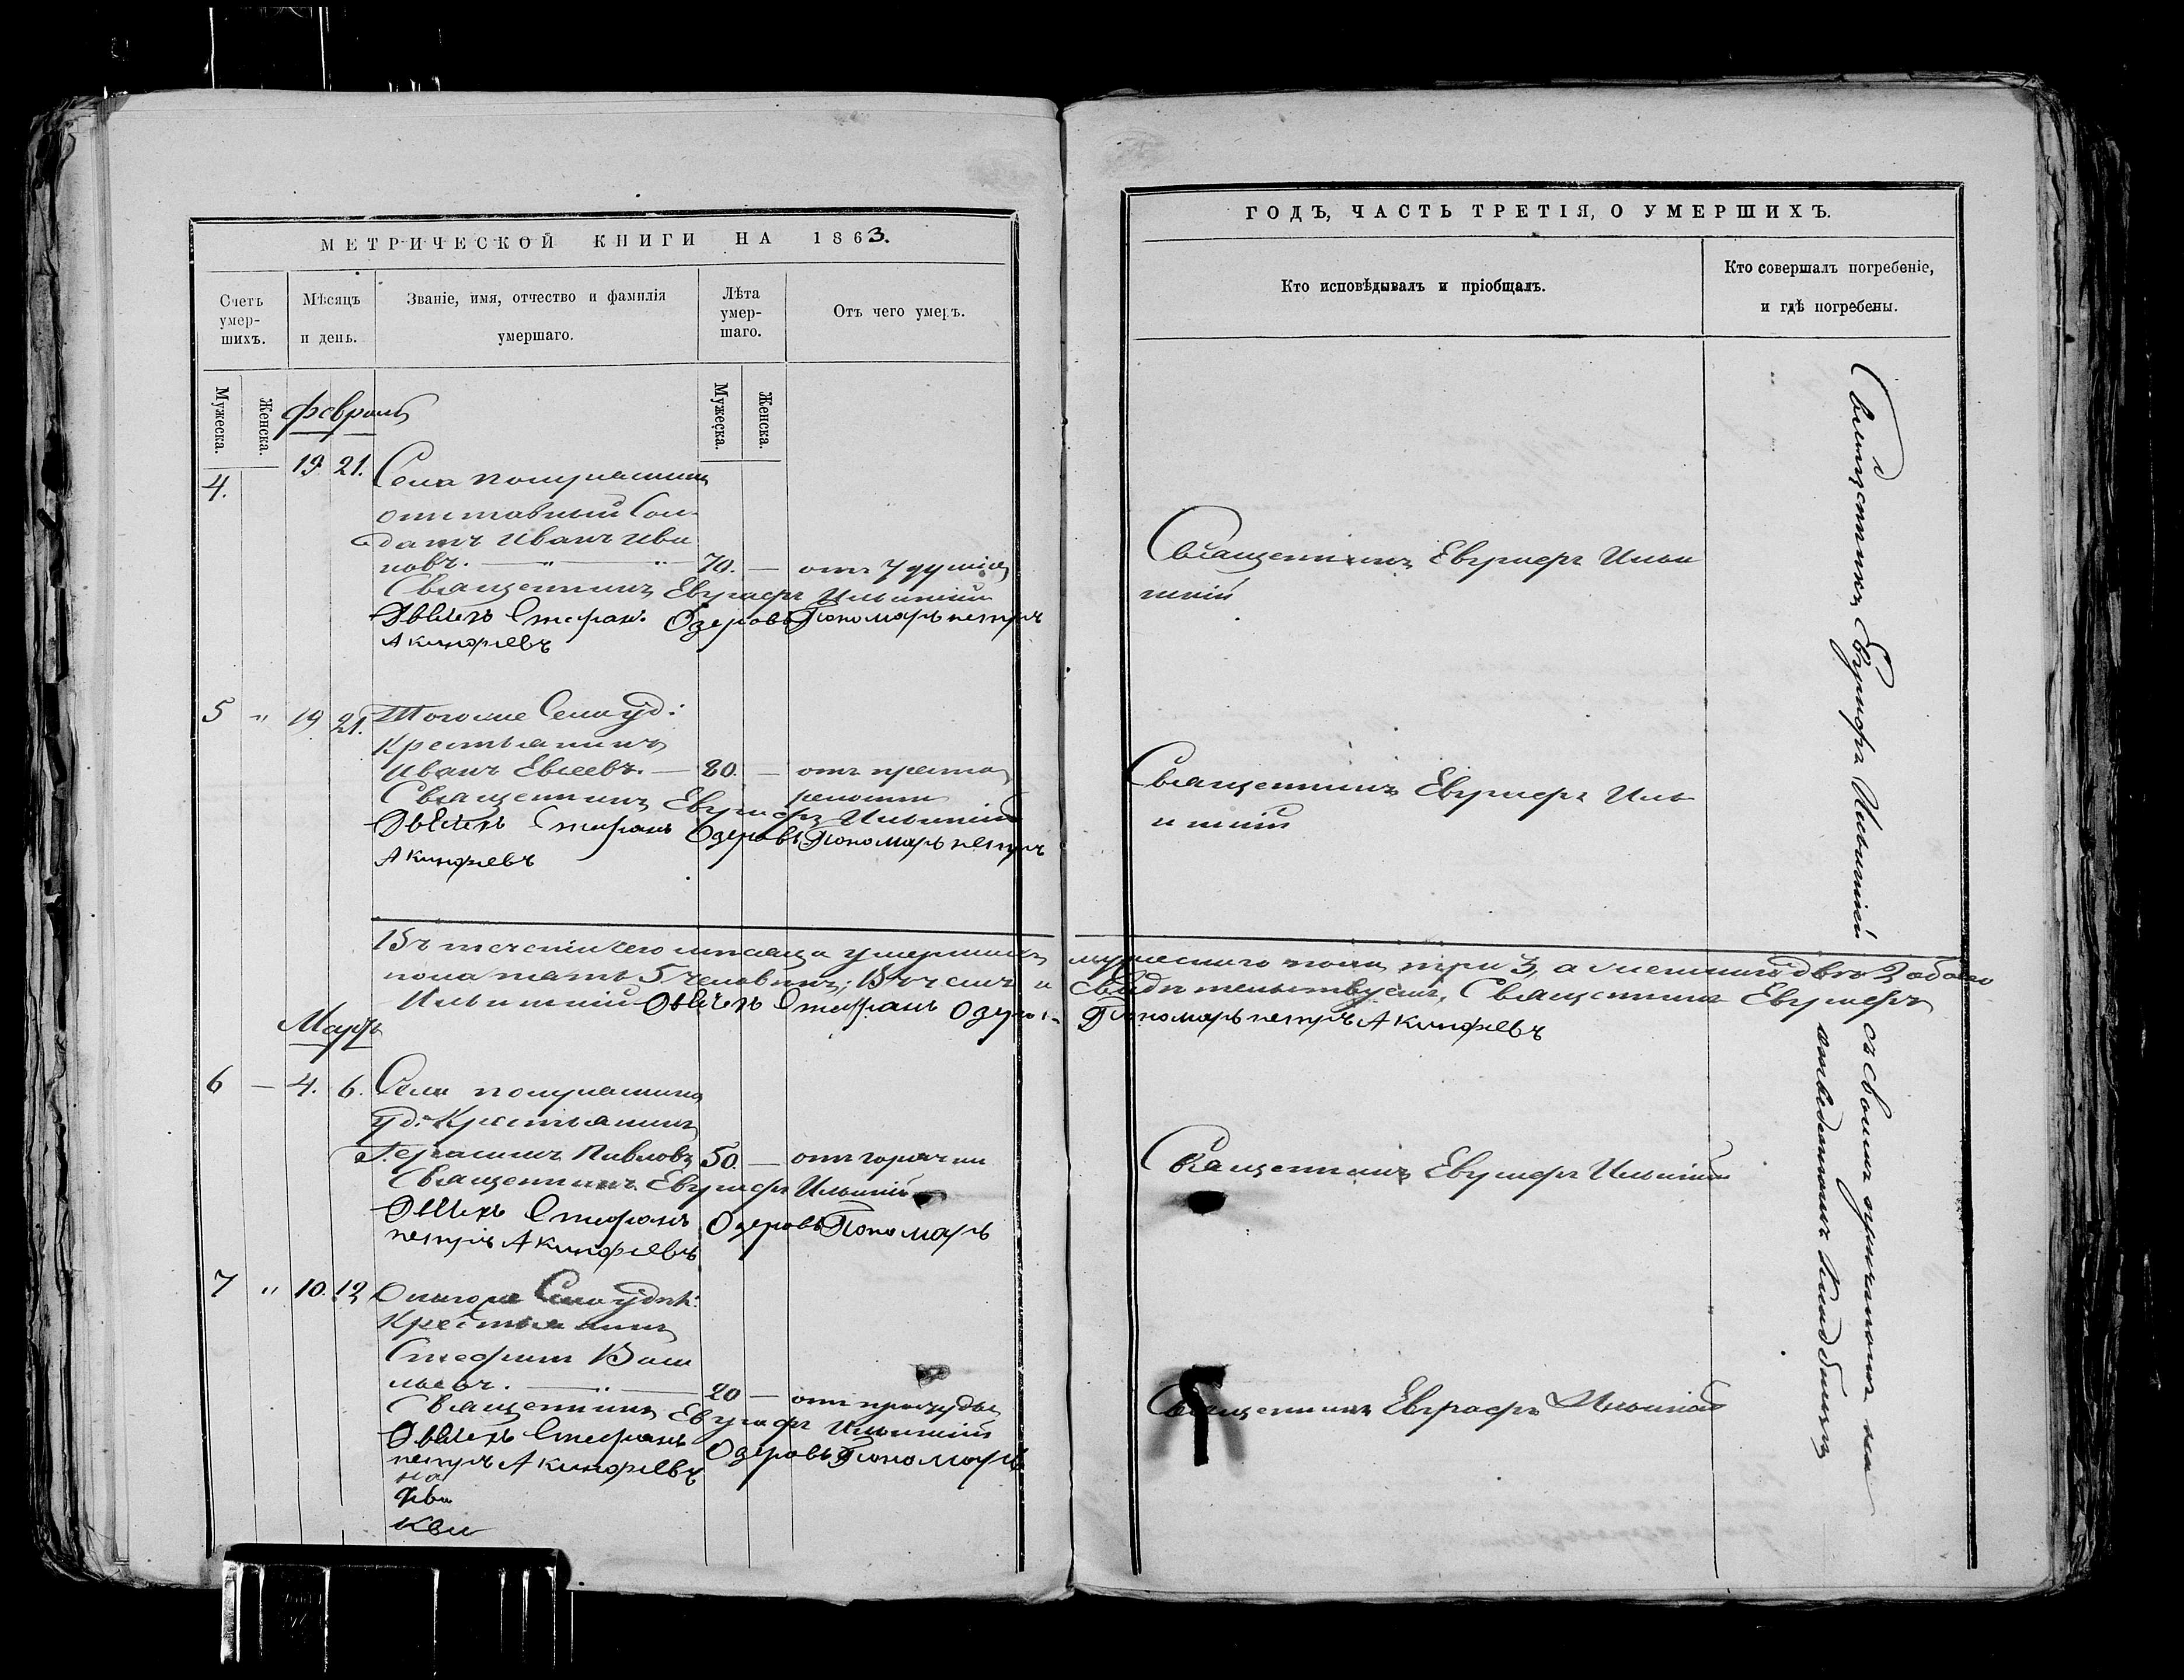 МЕТРИЧЕСКОЙ КНИГИ НА 1863.
Счетъ умер-шихъ.
Мѣсяцъ и день.
Званіе, имя, отчество и фамилія умершаго.
Лѣта умер-шаго.
Отъ чего умеръ.
Мужеска.
Женска.
Мужеска.
Женска.
Февраль
4. 19 21. Села
отставный Сол-
датъ Иванъ Ива
новъ. 70. — отъ удушія
Священникъ Евграфъ Ильинскій
Дьячекъ Стефанъ Озеровъ Пономарь петръ
Акинфіевъ
5 " 19 21. Тогоже Села уд:
Крестьянинъ
Иванъ Евсеевъ. — 80. — отъ преста
релости
Священникъ Евграфъ Ильинскій
Дьячекъ Стефанъ Озеровъ Пономарь петръ
Акинфіевъ
Въ теченіи сего месяца умершихъ
пола пять 5 человекъ; Въ чемъ и
Ильинскій Дьячекъ Стефанъ Озеровъ
Мартъ
6 — 4. 6. Села
уд: Крестьянинъ
Герасимъ Павловъ 50. — отъ горячки
Священникъ Евграфъ Ильинскій
Дьячекъ Стефанъ Озеровъ Пономарь
петръ Акинфіевъ
7 " 10. 12 Села
Крестьянинъ
Стефанъ Васи
льевъ. 20 — отъ простуды
Священникъ Евграфъ Ильинскій
Дьячекъ Стефанъ Озеровъ Пономарь
петръ Акинфіевъ
ГОДЪ, ЧАСТЬ ТРЕТІЯ, О УМЕРШИХЪ.
Кто исповѣдывалъ и пріобщалъ.
Кто совершалъ погребеніе, и гдѣ погребены.
Священникъ Евграфъ Ильи
нскій
Священникъ Евграфъ Иль
инскій
мужескаго пола три 3, а женскаго две 2 обоего
свидетельствуемъ, Священникъ Евграфъ
Пономарь петръ Акинфіевъ
Священникъ Евграфъ Ильинскій
Священникъ Евграфъ Ильинскій
Священникъ Евграфъ Ильинскій
съ своимъ причтомъ на
отведенномъ Кладбищѣ